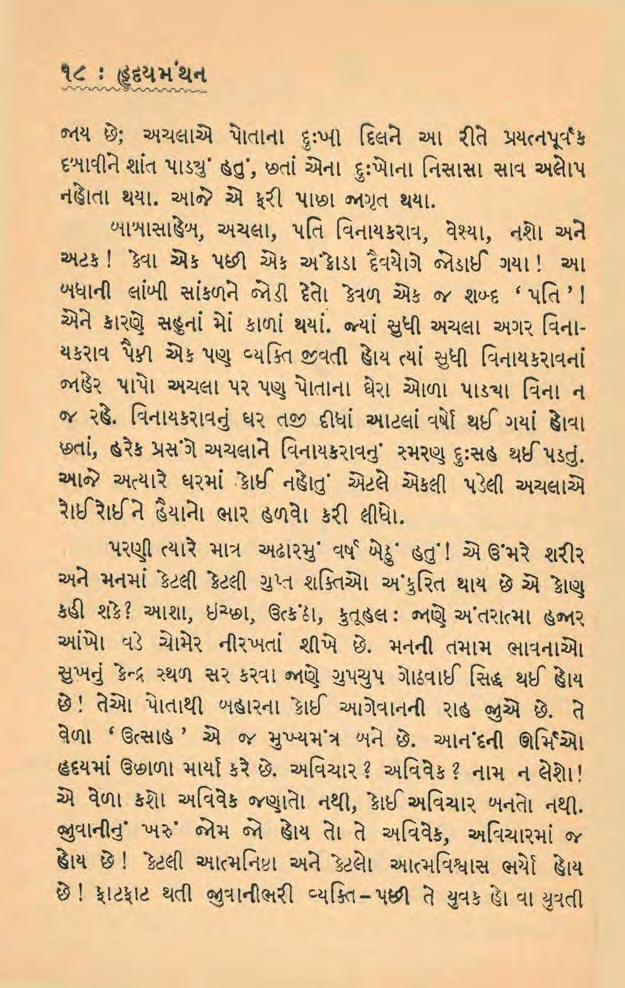 ૧૮ : હૃદયમંથન
જાય છે; અચલાએ પોતાના દુઃખી દિલને આ રીતે પ્રયત્નપૂર્વક
દબાવીને શાંત પાડ્યું હતું, છતાં એના દુઃખોના નિસાસા સાવ અલોપ
નહોતા થયા. આજે એ ફરી પાછા જાગૃત થયા.
બાબાસાહેબ, અચલા, પતિ વિનાયકરાવ, વેશ્યા, નશો અને
અટક! કેવા એક પછી એક અંકોડા દૈવયોગે જોડાઈ ગયા! આ
બધાની લાંબી સાંકળને જોડી દેતો કેવળ એક જ શબ્દ ‘પતિ’!
એને કારણે સહુનાં મોં કાળાં થયાં. જ્યાં સુધી અચલા અગર વિના-
યકરાવ પૈકી એક પણ વ્યક્તિ જીવતી હોય ત્યાં સુધી વિનાયકરાવનાં
જાહેર પાપો અચલા પર પણ પોતાના ઘેરા ઓળા પાડ્યા વિના ન
જ રહે. વિનાયકરાવનું ઘર તજી દીધાં આટલાં વર્ષો થઈ ગયાં હોવા
છતાં, હરેક પ્રસંગે અચલાને વિનાયકરાવનું સ્મરણ દુઃસહ થઈ પડતું.
આજે અત્યારે ઘરમાં કોઈ નહોતું એટલે એકલી પડેલી અચલાએ
રોઈરોઈને હૈયાનો ભાર હળવો કરી લીધો.
પરણી ત્યારે માત્ર અઢારમું વર્ષ બેઠું હતું! એ ઉંમરે શરીર
અને મનમાં કેટલી કેટલી ગુપ્ત શક્તિઓ અંકુરિત થાય છે એ કોણ
કહી શકે? આશા, ઇચ્છા, ઉત્કંઠા, કુતૂહલ: જાણે અંતરાત્મા હજાર
આંખો વડે ચોમેર નીરખતાં શીખે છે. મનની તમામ ભાવનાઓ
સુખનું કેન્દ્ર સ્થળ સર કરવા જાણે ગુપચુપ ગોઠવાઈ સિદ્ધ થઈ હોય
છે! તેઓ પોતાથી બહારના કોઈ આગેવાનની રાહ જુએ છે. તે
વેળા ‘ઉત્સાહ’ એ જ મુખ્યમંત્ર બને છે. આનંદની ઊર્મિઓ
હૃદયમાં ઉછાળા માર્યા કરે છે. અવિચાર? અવિવેક? નામ ન લેશો!
એ વેળા કશો અવિવેક જણાતો નથી, કોઈ અવિચાર બનતો નથી.
જુવાનીનું ખરું જોમ જો હોય તો તે અવિવેક, અવિચારમાં જ
હોય છે! કેટલી આત્મનિષ્ઠા અને કેટલો આત્મવિશ્વાસ ભર્યો હોય
છે! ફાટફાટ થતી જુવાનીભરી વ્યક્તિ–પછી તે યુવક હો વા યુવતી